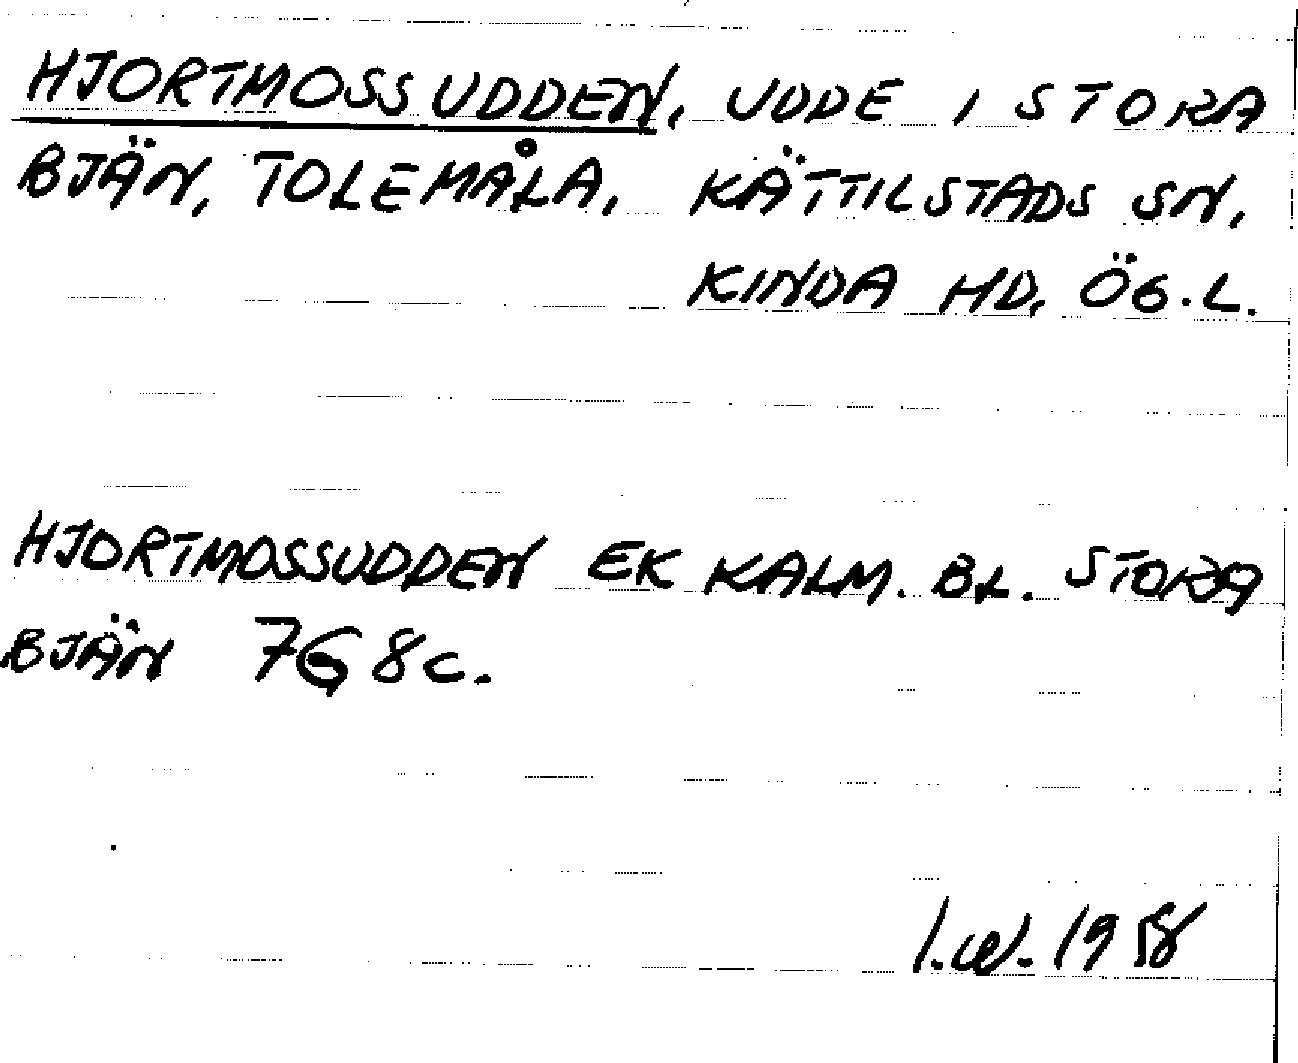 HJORTMOSSUDDEN, UDDE I STORA
BJÄN, TOLEMÅLA, KÄTTILSTADS SN,
KINDA HD, ÖG.L.
HJORTMOSSUDDEN EK KALM. BL. STORA
BJÄN 7G 8c.
I.W. 19